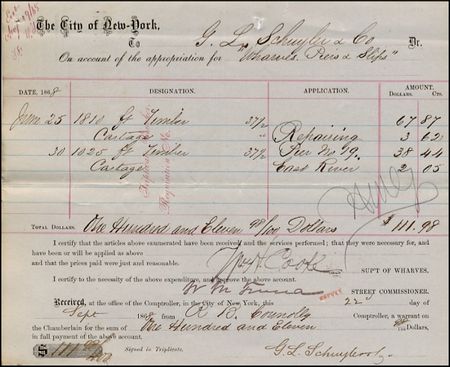 The City of New-York,
To G. L. Schuyler & Co Dr.
On account of the appropriation for "Wharves, Piers & Slips"
DATE, 1868 DESIGNATION. APPLICATION. AMOUNT.
DOLLARS. CTS.
June 25 1810 ft Timber 37/2 67 87
Cartage Repairing 3 62
30 1025 ft Timber 37/2 Pier No 19. 38 44
Cartage East River 2 05
TOTAL DOLLARS. One Hundred and Eleven 98/100 Dollars $111.98
I certify that the articles above enumerated have been received and the services performed; that they were necessary for, and
have been or will be applied as above
and that the prices paid were just and reasonable.
SUPT OF WHARVES.
I certify to the necessity of the above expenditure, and approve the above account.
STREET COMMISSIONER.
Received, at the office of the Comptroller, in the City of New York, this 22 day of
Sept 1868 from R. B. Connolly Comptroller, a warrant on
the Chamberlain for the sum of One Hundred and Eleven Dollars,
in full payment of the above account.
$111 98/100 Signed in Triplicate. G. L. Schuyler & Co